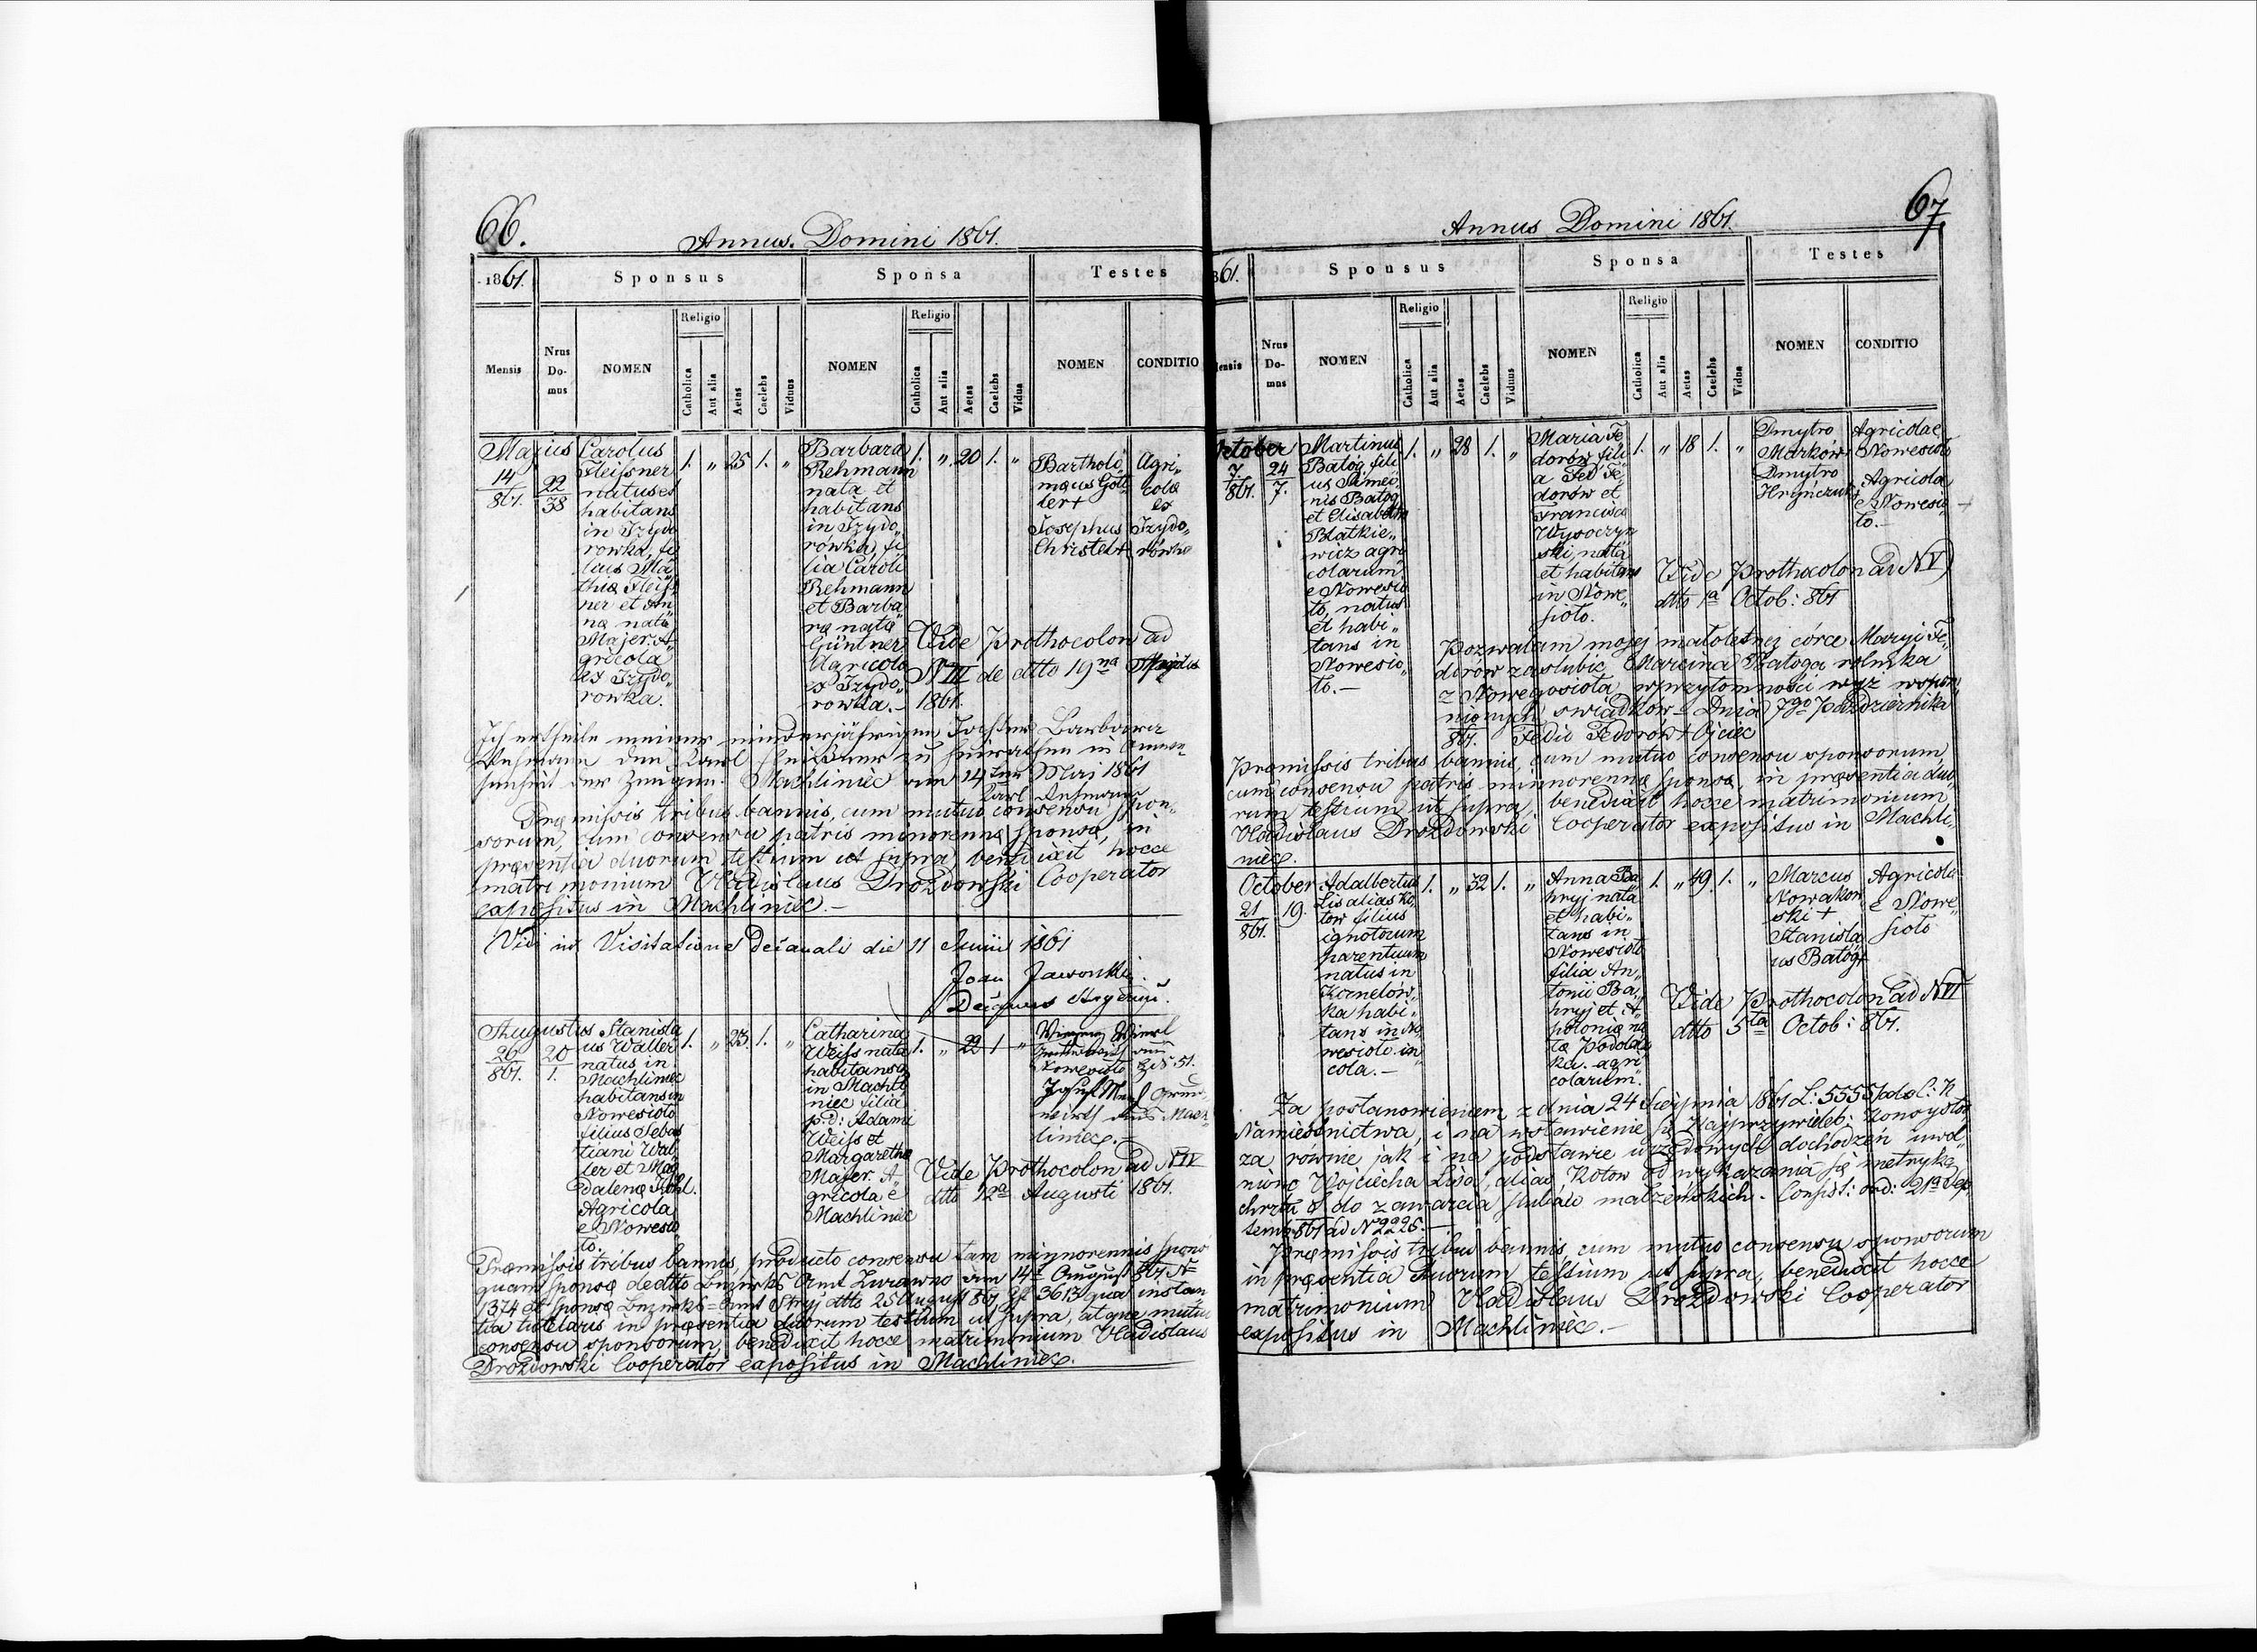 66.
Annus Domini 1861.
1861.
Sponsus
Sponsa
Testes
Mensis
Nrus Do- mus
NOMEN
Religio
Catholica
Aut alia
Aetas
Caelebs
Viduus
NOMEN
Religio
Catholica
Aut alia
Aetas
Caelebs
Vidua
NOMEN
CONDITIO
Majus
14
861.
22
38
Carolus
Fleissner
natus et
habitans
in Izydo
rowka, fi
lius Ma
thiæ Fleiss
ner et An
næ nata
Majer. A
gricola
ex Izydo„
rowka.
1. „ 25 1. „
Barbara
Rehmann
nata et
habitans
in Izydo„
rówka, fi
lia Caroli
Rehmann
et Barba
ræ nata
Güntner
Agricola
ex Izydo„
rowka.—
1. „ 20 1. „
Bartholo
mæus Gött
ler+
Josephus
Christel+
Agri„
colæ
ex
Izydo„
rówka
Vide Prothocolon ad
N III de dtto 19na
1861.
Ich ertheile meiner minderjährigen Tochter Barbara
Rehmann den Karl Fleißner zu heirathen in Anwe
senheit der Zeugen. Machliniec am 14ten Mai 1861
Karl Rehmann
Præmissis tribus bannis, cum mutuo consensu spon„
sorum, cum consensu patris minorennæ sponsæ, in
præsentia duorum testium ut supra, benedixit hocce
matrimonium Vladislaus Drozdowski Cooperator
expositus in Machliniec.—
Vidi in Visitatione decanali die 11 Junii 1861
Joan Jaworski
Decanus
Augustus
26
861.
20
1.
Stanisla
us Walter
natus in
Machliniec
habitans in
Nowesioło
filius Sebas
tiani Wal
ter et Mag
dalenæ Köhl.
Agricola
e Nowesio
ło.
1. „ 23. 1. „
Catharina
Weiss nata
habitans
in Machli
niec filia
p.d: Adami
Weiss et
Margaretha
Majer. A„
gricola e
Machliniec
1. „ 22 1 „
Nowesioło N 51.
Josef
wirth aus Mach
liniec.—
Vide Prothocolon ad N IV
dtto 12a Augusti 1861.
Præmissis tribus bannis, producto consensu tam minnorennis sponsi
quam sponsæ de dtto Bezirks Amt Zurawno am 14t August 861 N
1374 et sponsæ Bezirks=Amt Stryj dtto 25 August 861 3613 qua instan
tia tutelaris in præsentia duorum testium ut supra, atque mutuo
consensu sponsorum, benedixit hocce matrimonium Vladislaus
Drozdowski Cooperator expositus in Machliniec.
67
Annus Domini 1861.
861.
Sponsus
Sponsa
Testes
Mensis
Nrus Do- mus
NOMEN
Religio
Catholica
Aut alia
Aetas
Caelebs
Viduus
NOMEN
Religio
Catholica
Aut alia
Aetas
Caelebs
Vidua
NOMEN
CONDITIO
October
7
861.
24
7.
Martinus
Batóg fili
us Simeo„
nis Batóg
et Elisabetha
Błatkie„
wicz agri
colarum
e Nowesio
ło, natus
et habi„
tans in
Nowesio„
ło.—
1. „ 28 1. „
Maria Fe„
dorów fili
a Fed' Fe„
dorów et
Francisca
Wysoczyn
ski, nata
et habitans
in Nowe„
sioło.
1. „ 18 1. „
Dmytro
Marków+
Dmytro
Hrynczuk+
Agricolæ
Nowesioło
Agricola
e Nowesio
ło.—
Vide Prothocolon ad N V
dtto 1a Octob: 861
Pozwalam mojej małoletnej córce Maryi Fe„
dorów zaślubić Marcina Batoga rolnika
z Nowegosioła w przytomności wyż wspom„
nionych swiadków— Dnia 7go Października
861. Fedio Fedorów+ Ojciec
Præmissis tribus bannis, cum mutuo consensu sponsorum,
cum consensu patris minnorennæ sponsæ, in præsentia duo„
rum testium ut supra, benedixit hocce matrimonium
Vladislaus Drozdowski Cooperator expositus in Machli„
niec.
October
21
861.
19.
Adalbertus
Lis alias Ko„
tow filius
ignotorum
parentuum
natus in
Kornelów„
ka habi„
tans in No„
wesioło in
cola.—
1. „ 32 1. „
Anna Ba
hryj nata
et habi„
tans in
Nowesioło
filia An„
tonii Ba„
hryj et A„
poloniæ na
ta Podols
ka. agri
colarum.
1. „ 49 1. „
Marcus
Nowakow
ski+
Stanisla
us Batóg+
Agricola
e Nowe„
sioło
Vide Prothocolon ad N VI
dtto 5ta Octob: 861.
Za postanowieniem z dnia 24 Sierpnia 861 L: 5555
Namiestnictwa, i na wstawienie się Najprzywieleb: Konsystor
za równie jak i na podstawie urzędowych dochodzeń uwol„
niono Wojciecha Lisa, alias Kotow od wykazania się metryką
chrztu do zawarcia ślubów małżeńskich. Consist: ord: 21a Sep
temb 861 ad N 2225.—
Præmissis tribus bannis, cum mutuo consensu sponsorum
in præsentia duorum testium ut supra, benedixit hocce
matrimonium Vladislaus Drozdowski Cooperator
expositus in Machliniec.—